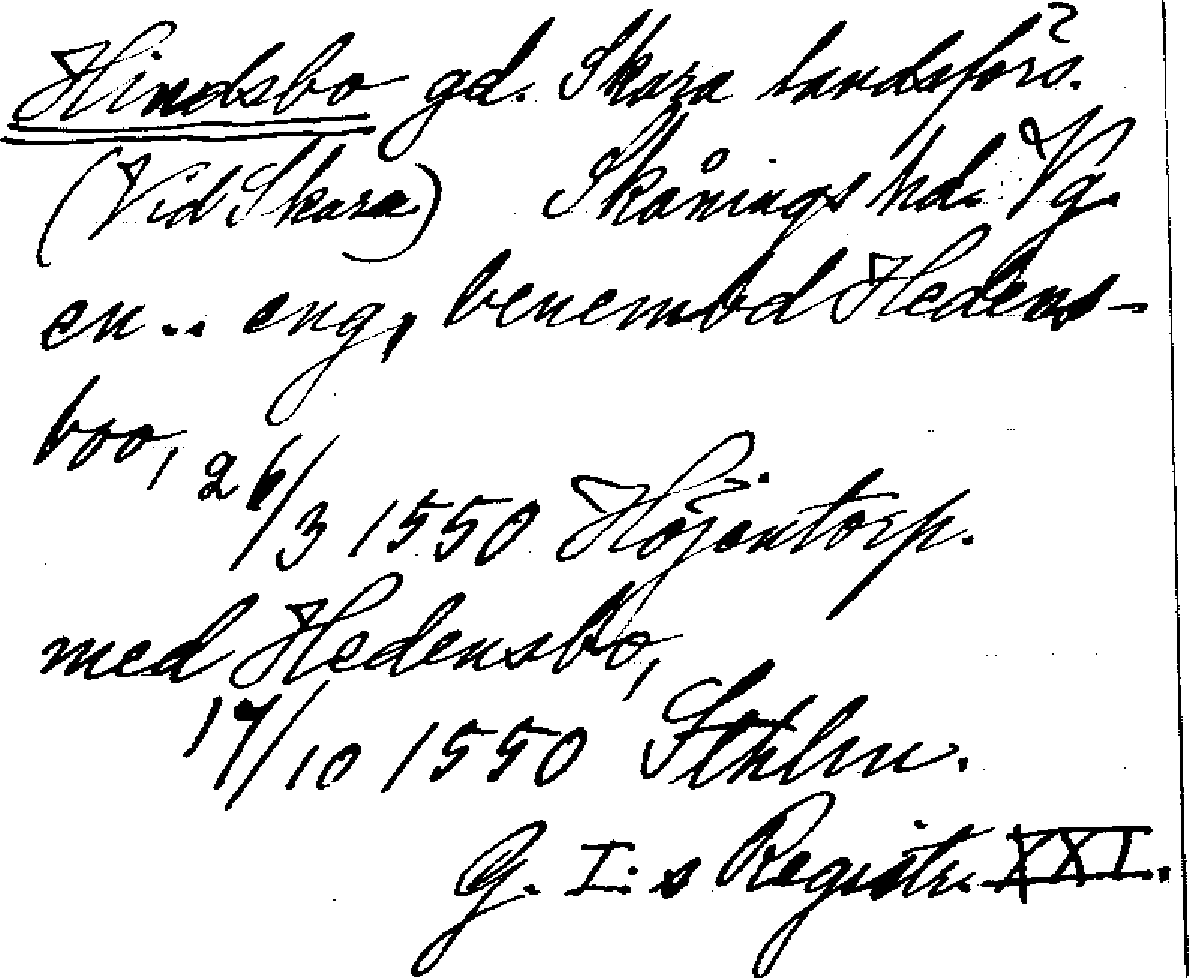 Hindsbo gd. Skara landsförs.
(Vid Skara) Skånings hd. Vg.
en.. eng, benembd Hedens-
boo, 26/3 1550 Höjentorp.
med Hedensbo,
17/10 1550 Sthlm.
G. I:s Registr. XXI.